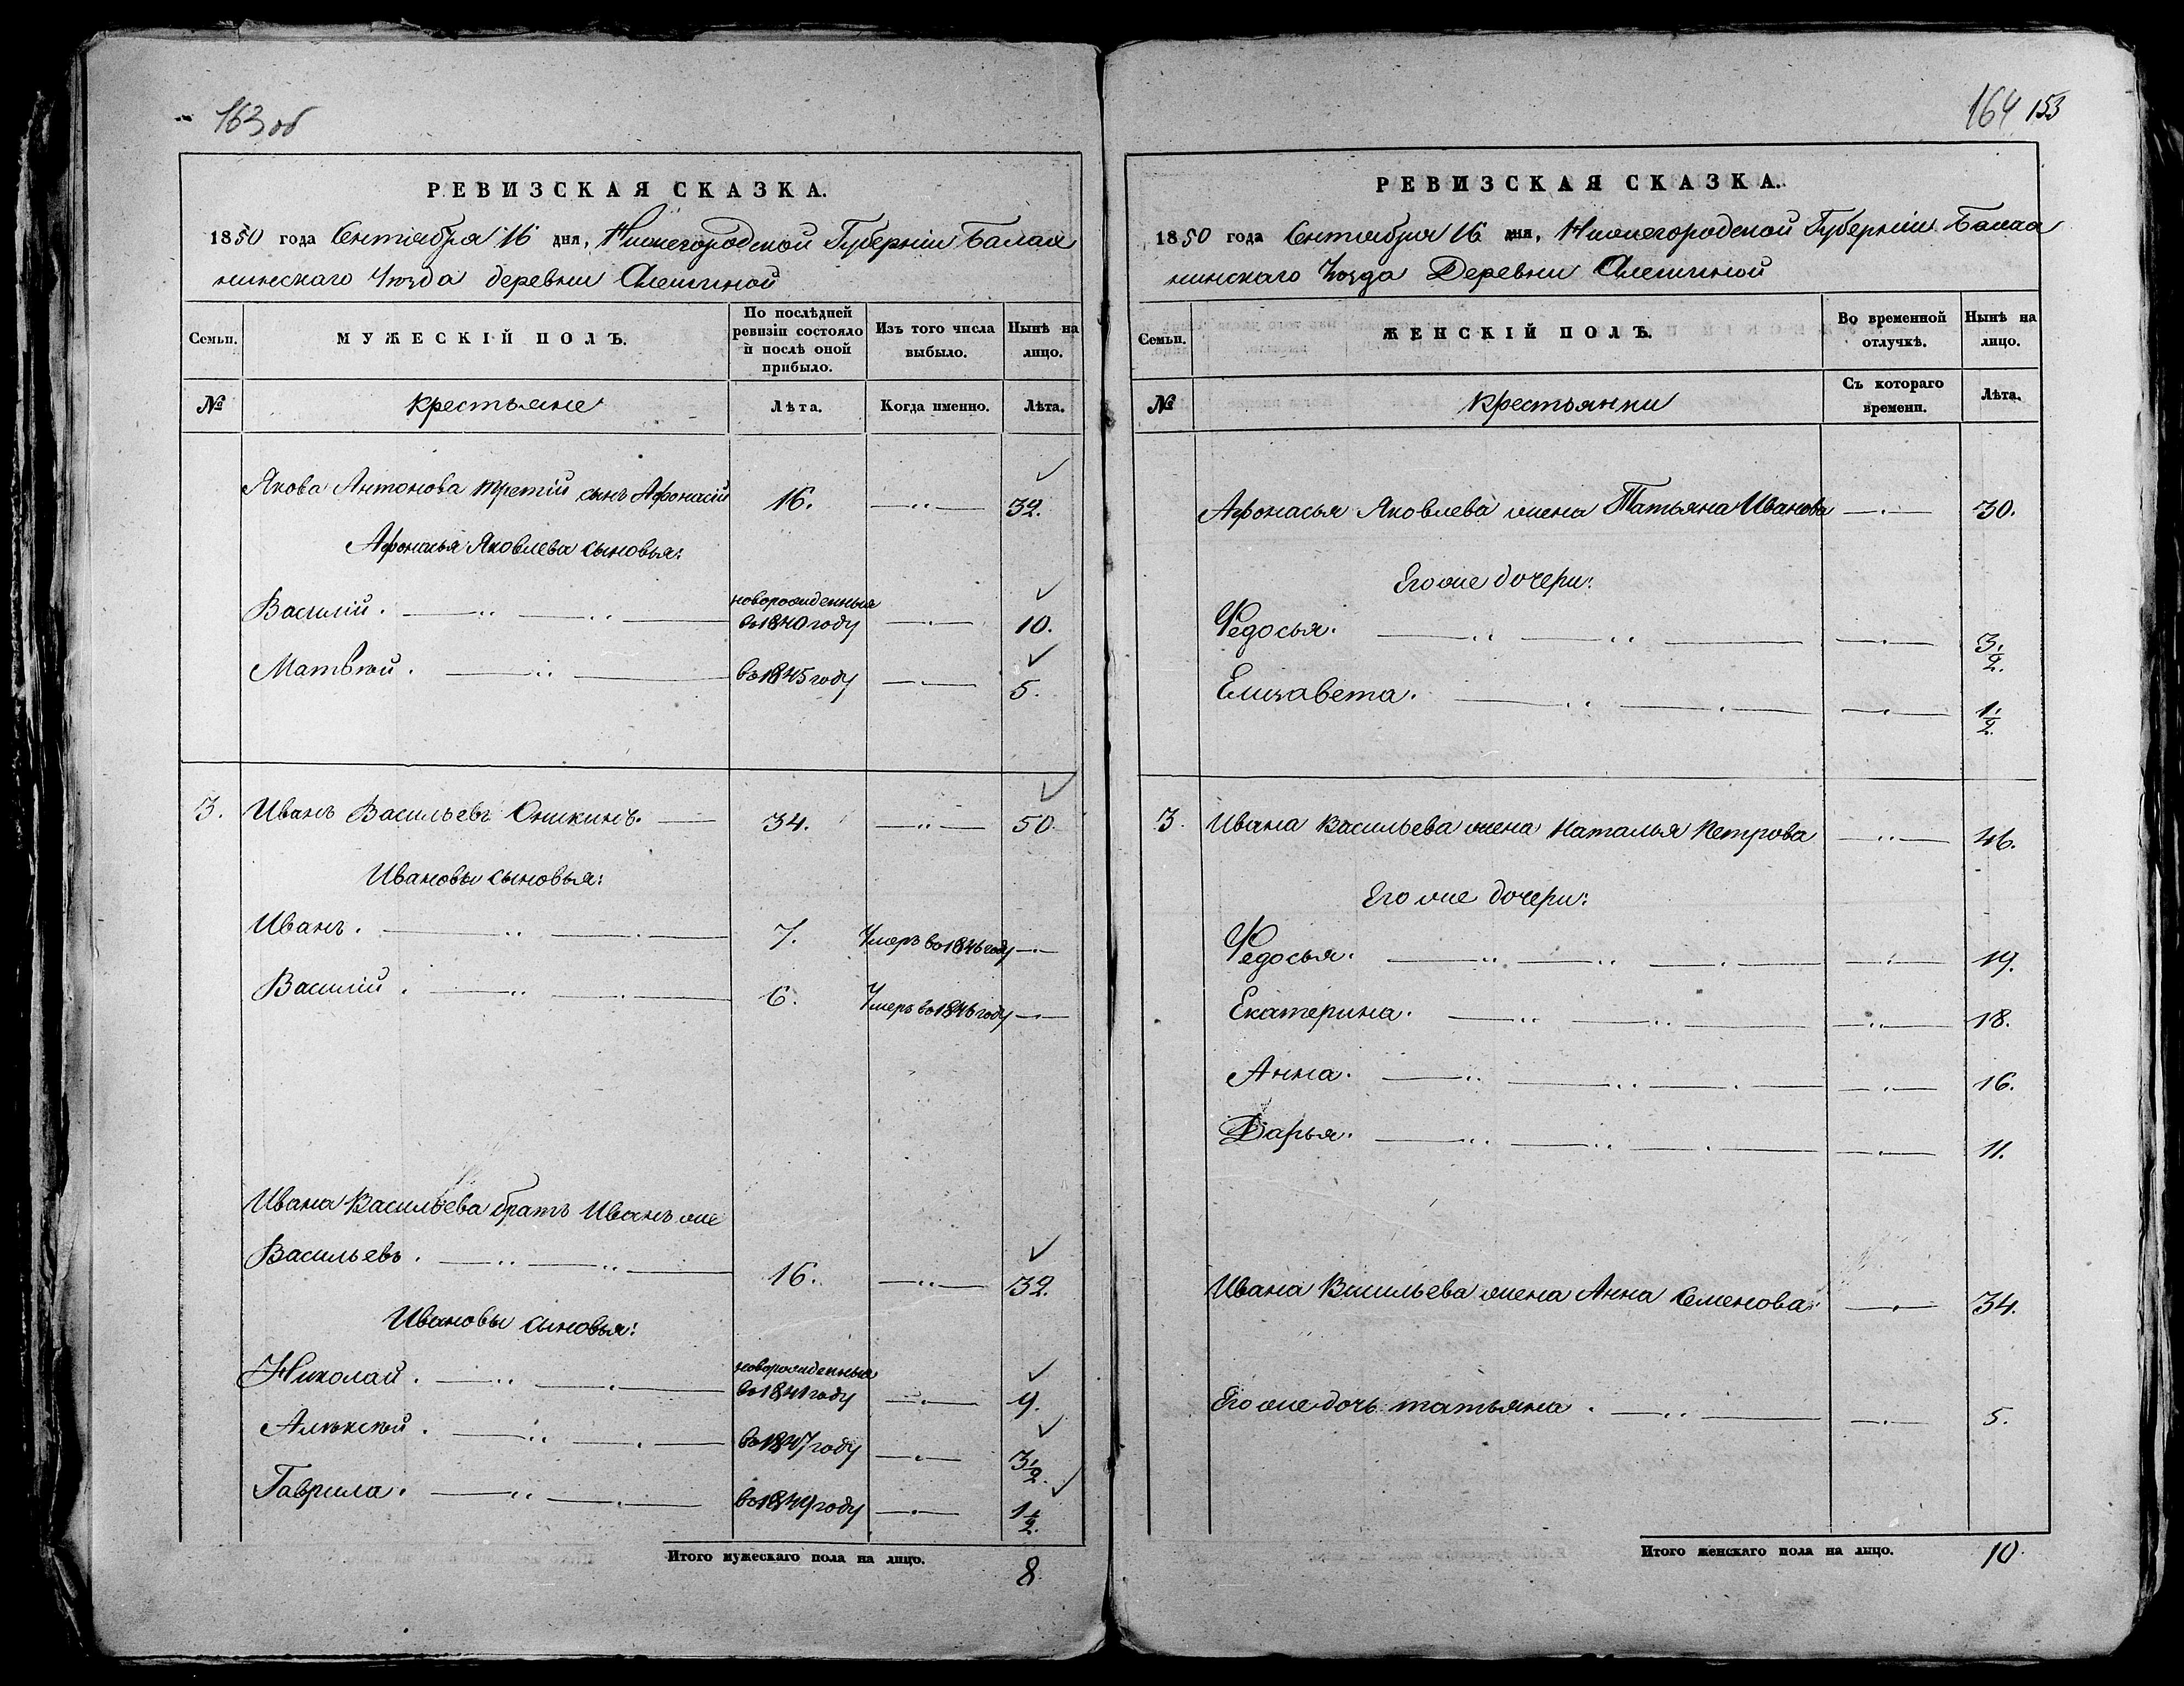 163 об
РЕВИЗСКАЯ СКАЗКА.
1850 года Сентября 16 дня, Нижегородской Губерніи Балах
нинскаго Уѣзда деревни Алешиной
Семьи.
МУЖЕСКІЙ ПОЛЪ.
По послѣдней ревизіи состояло и послѣ оной прибыло.
Изъ того числа выбыло.
Нынѣ на лицо.
№
Крестьяне
Лѣта.
Когда именно.
Лѣта.
Якова Антонова третій сынъ Афонасій 16. 32.
Афонасья Яковлева сыновья:
Василій. новорожденныя въ 1840 году 10.
Матвѣй. въ 1845 году 5.
3. Иванъ Васильевъ Оникинъ. 34. 50.
Ивановы сыновья:
Иванъ. 7. Умеръ въ 1846 году
Василій. 6. Умеръ въ 1846 году
Ивана Васильева братъ Иванъ же
Васильевъ. 16. 32.
Ивановы сыновья:
Николай. новорожденныя въ 1841 году 9.
Алѣксѣй. въ 1847 году 3 1/2.
Гаврила. въ 1849 году 1 1/2.
Итого мужескаго пола на лицо. 8
164 153
РЕВИЗСКАЯ СКАЗКА.
1850 года Сентября 16 дня, Нижегородской Губерніи Балах
нинскаго Уѣзда Деревни Алешиной
Семьи.
ЖЕНСКІЙ ПОЛЪ.
Во временной отлучкѣ.
Нынѣ на лицо.
№
Крестьянки
Съ котораго времени.
Лѣта.
Афонасья Яковлева жена Татьяна Иванова 30.
Его же дочери:
Федосья. 3 1/2.
Елизавета. 1 1/2.
3. Ивана Васильева жена Наталья Петрова 46.
Его же дочери:
Федосья. 19.
Екатерина. 18.
Анна. 16.
Дарья. 11.
Ивана Васильева жена Анна Семенова. 34.
Его же дочь татьяна. 5.
Итого женскаго пола на лицо. 10.